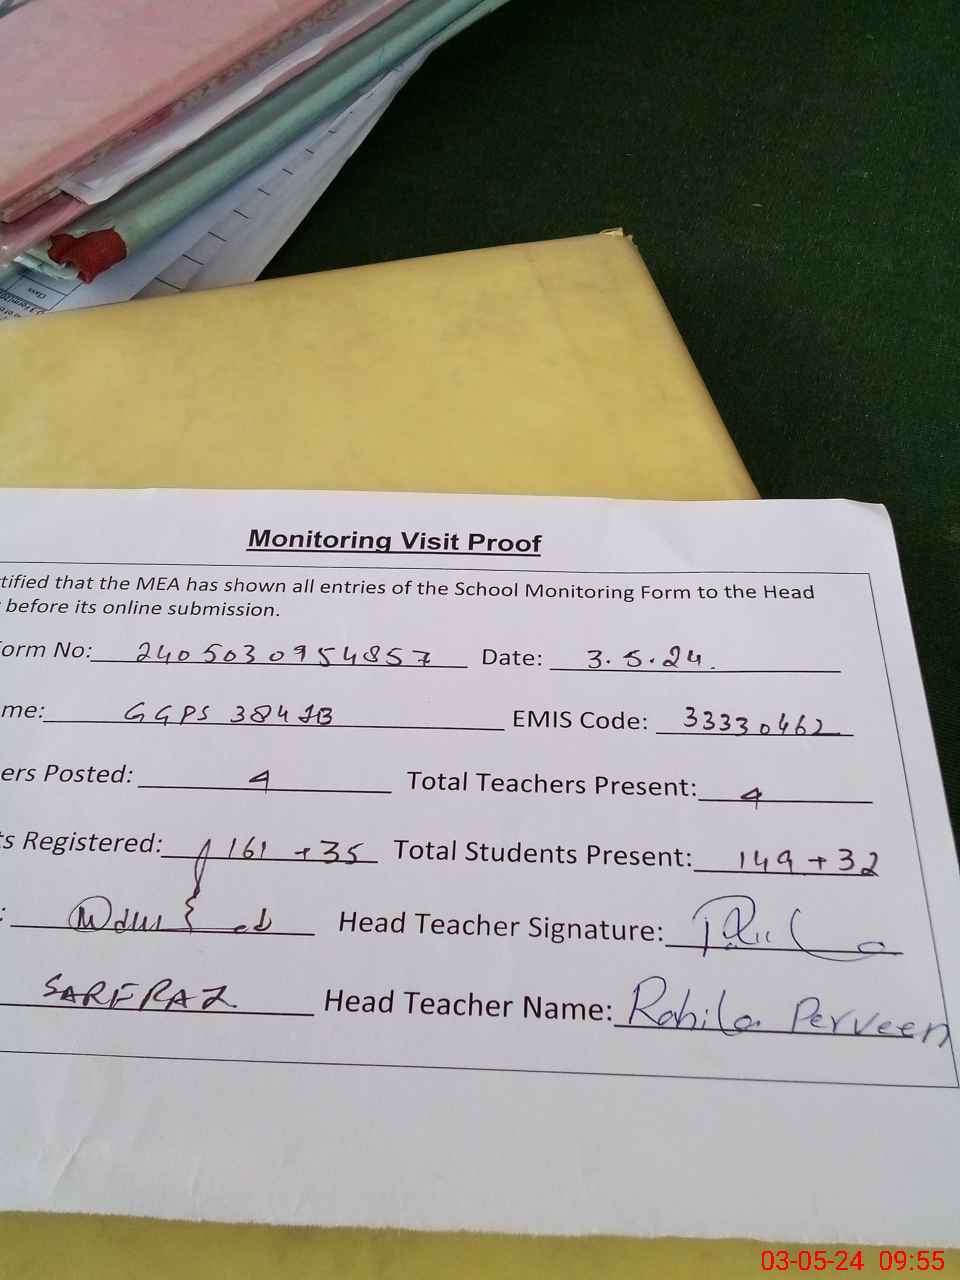 Class
Monitoring Visit Proof
tified that the MEA has shown all entries of the School Monitoring Form to the Head
before its online submission.
orm No: 2405030954857 Date: 3.5.24.
me: GGPS 384 JB EMIS Code: 33330462
ers Posted: 4 Total Teachers Present: 4
ts Registered: 161 +35 Total Students Present: 149+32
: Head Teacher Signature:
SARFRAZ Head Teacher Name: Rahila Perveen
03-05-24 09:55